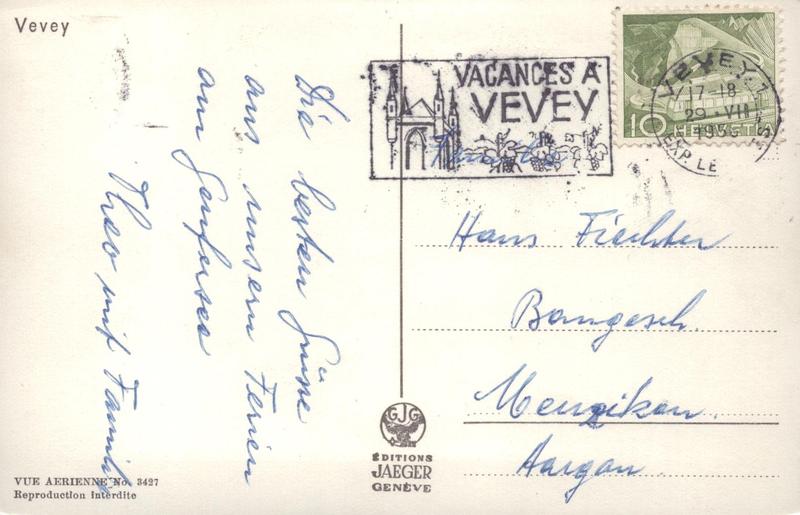 Vevey
Die besten Grüsse
aus unsern Ferien
am Genfersee
Theo mit Familie
VUE AERIENNE No. 3427
Reproduction interdite
VACANCES A
VEVEY
VEVEY 1
17-18
29.VII
EXP. LE
10 HELVETIA
Hans Fiechter
Baugesch.
Menziken.
Aargau.
GJG
ÉDITIONS
JAEGER
GENÈVE